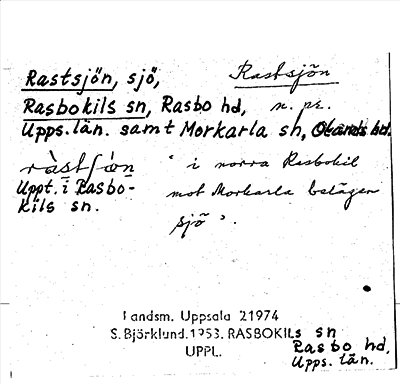 Rastsjön, sjö, Rastsjön
Rasbokils sn, Rasbo hd, n. pr.
Upps. län. samt Morkarla sn, Olands hd.
ràstʃön ‘ i norra Rasbokil
Uppt. i Rasbo- mot Morkarla belägen
kils sn. sjö ’.
Landsm. Uppsala 21974
S. Björklund. 1953. RASBOKILs sn
UPPL. Rasbo hd,
Upps. län.